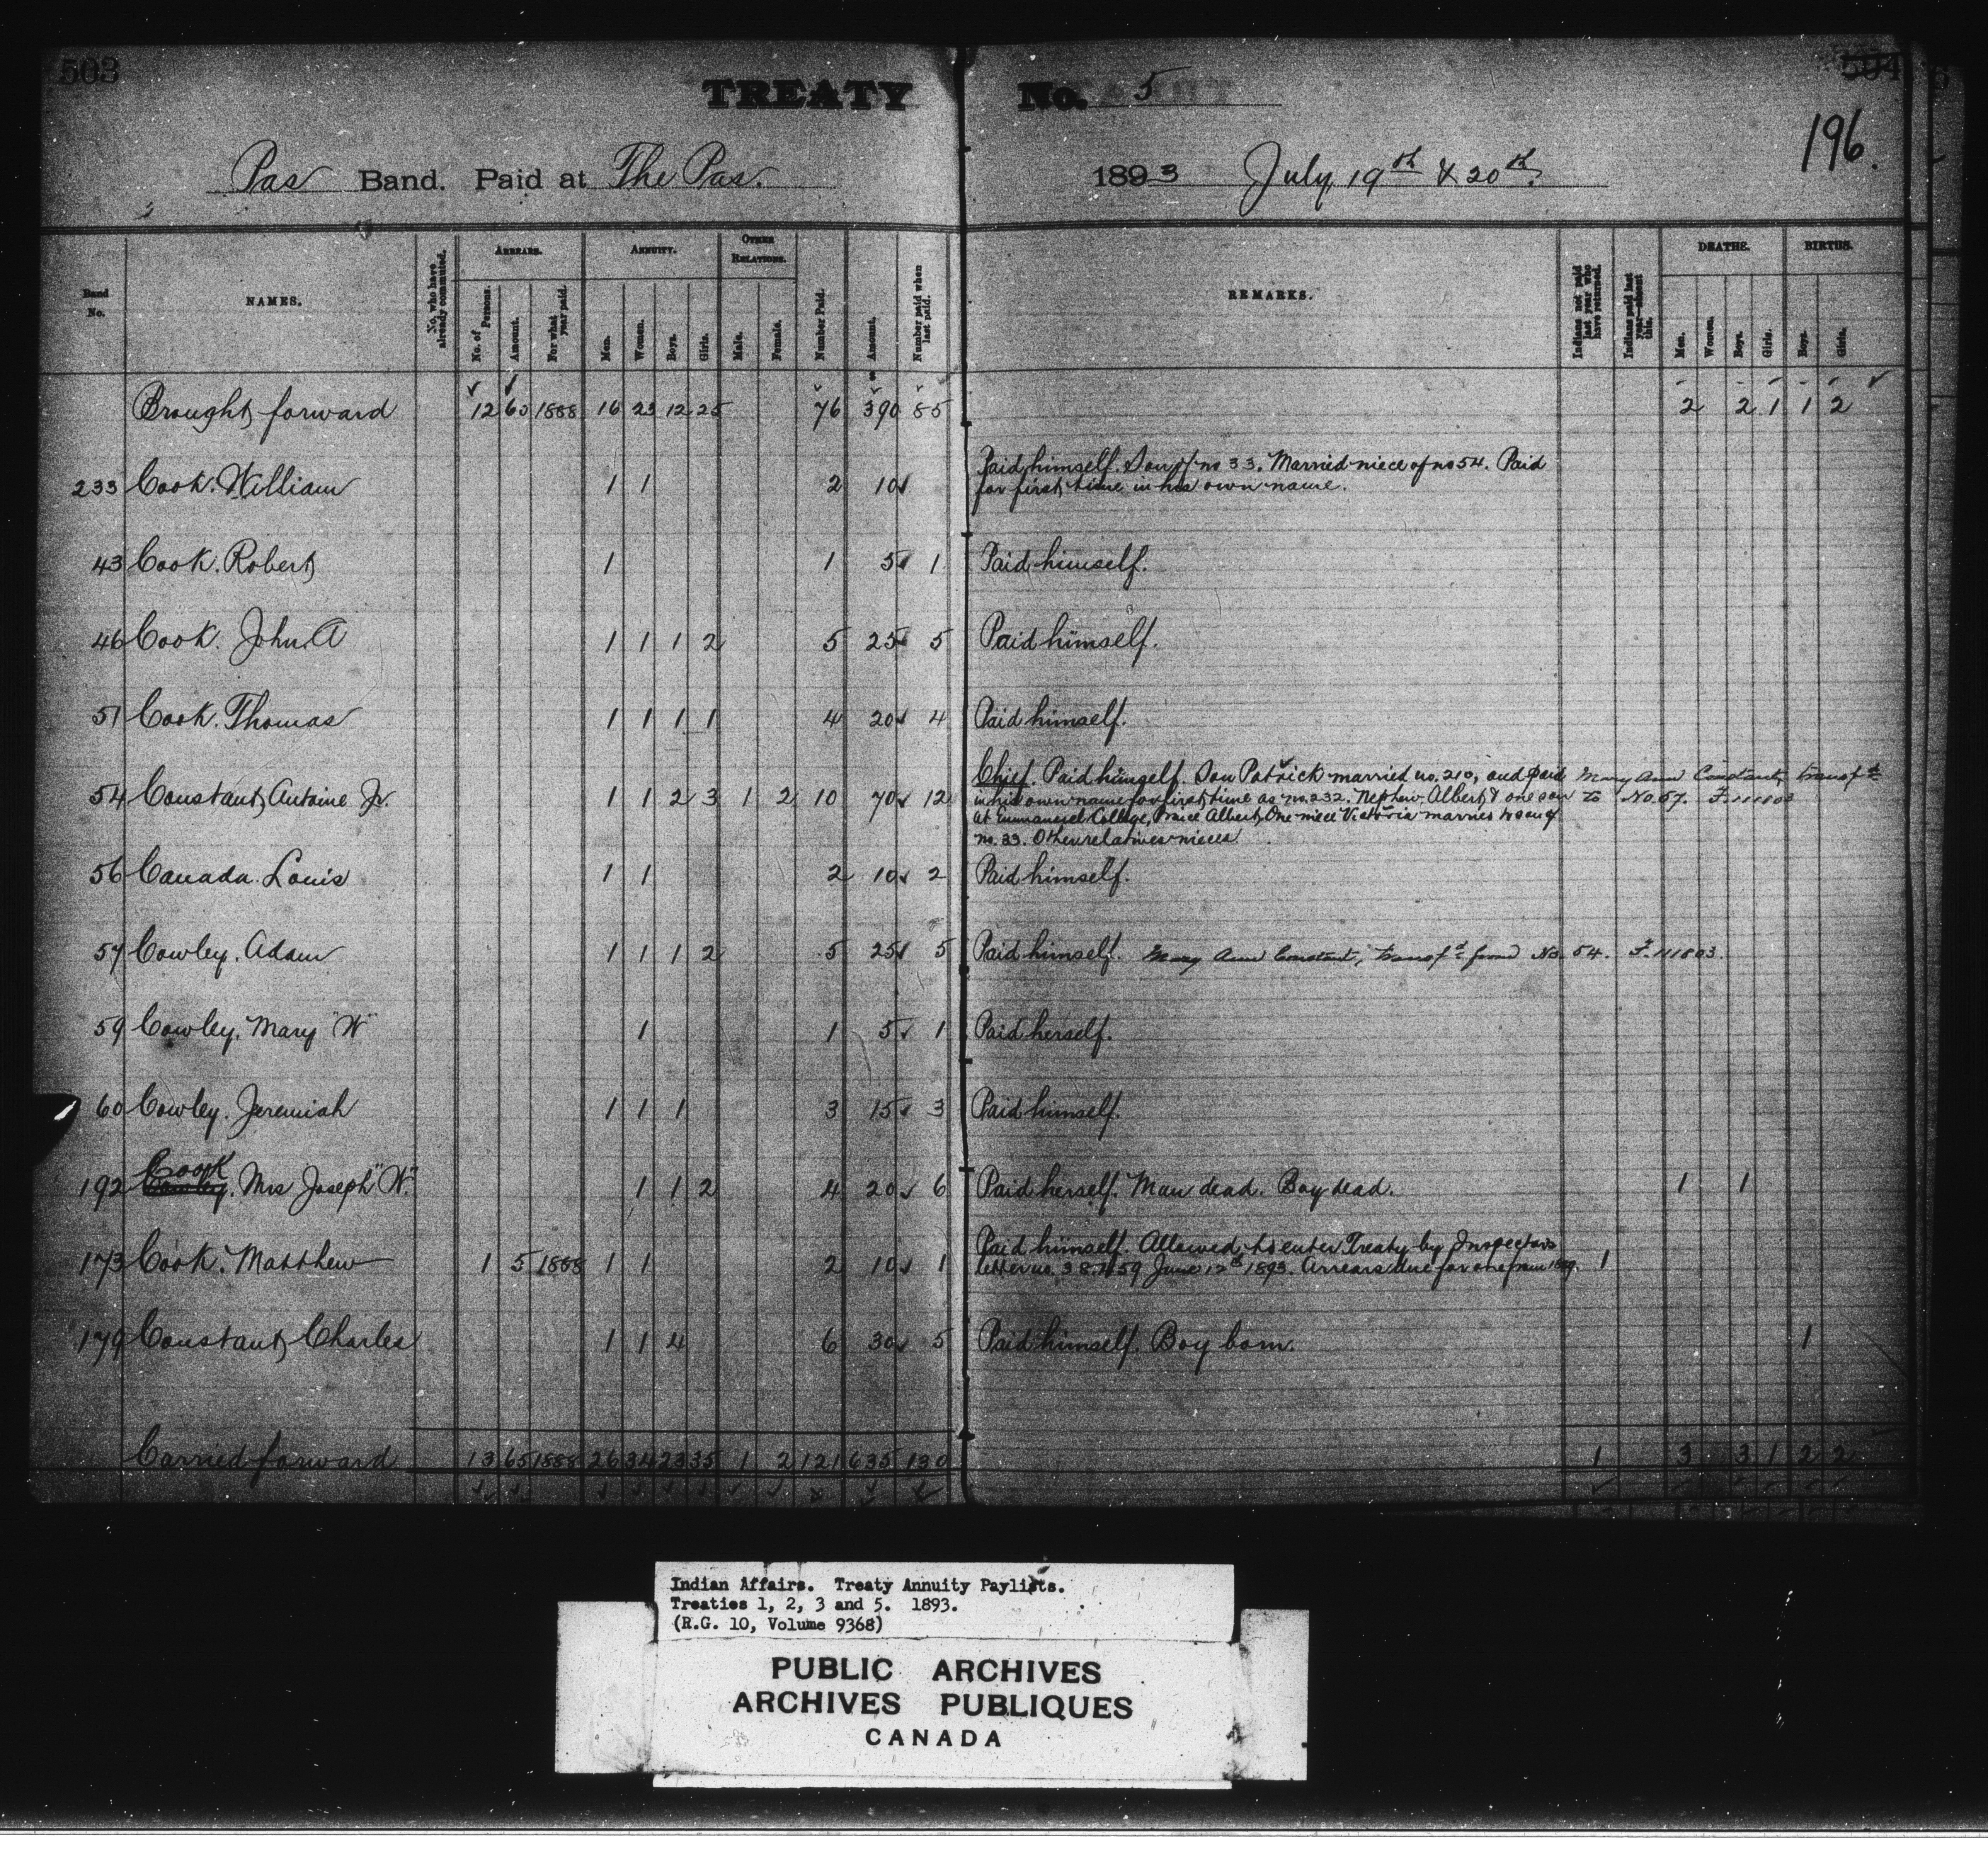 503
504
TREATY No. 5
196.
Pas Band. Paid at The Pas. 1893 July 19th & 20th.
Band No.
NAMES.
No. who have already commuted.
ARREARS.
No. of Persons.
Amount.
For what year paid.
ANNUITY.
Men.
Women.
Boys.
Girls.
OTHER RELATIONS.
Male.
Female.
Number Paid.
Amount.
Number paid when last paid.
REMARKS.
Indians not paid last year who have returned.
Indians paid last year—absent this.
DEATHS.
Men.
Women.
Boys.
Girls.
BIRTHS.
Boys.
Girls.
Brought forward 12 60 1888 16 23 12 25 76 390 85 2 2 1 1 2
233 Cook. William 1 1 2 10 Paid himself. Son of no 33. Married niece of no 54. Paid
for first time in his own name.
43 Cook. Robert 1 1 5 1 Paid himself.
46 Cook. John A 1 1 1 2 5 25 5 Paid himself.
51 Cook. Thomas 1 1 1 1 4 20 4 Paid himself.
54 Constant, Antoine Jr. 1 1 2 3 1 2 10 70 12 Chief. Paid himself. Son Patrick married no. 210, and paid Mary Ann Constant, transf'd
in his own name for first time as no. 232. Nephew Albert & one son to No. 57. F. 111803
at Emmanuel College, Prince Albert, One niece Victoria married to son of
no. 33. Other relatives nieces
56 Canada. Louis 1 1 2 10 2 Paid himself.
57 Cowley. Adam 1 1 1 2 5 25 5 Paid himself. Mary Ann Constant, transf'd from No. 54. F. 111803.
59 Cowley. Mary "W" 1 1 5 1 Paid herself.
60 Cowley. Jeremiah 1 1 1 3 15 3 Paid himself.
Cook
192 Cowley. Mrs Joseph "W." 1 1 2 4 20 6 Paid herself. Man dead. Boy dead. 1 1
173 Cook. Matthew 1 5 1888 1 1 2 10 1 Paid himself. Allowed to enter Treaty by Inspectors
letter no. June 12th 1893. Arrears due for one from 1 
179 Constant, Charles 1 1 4 6 30 5 Paid himself. Boy born. 1
Carried forward 13 65 1888 26 34 23 35 1 2 121 635 130 1 3 3 1 2 2
Indian Affairs. Treaty Annuity Paylists.
Treaties 1, 2, 3 and 5. 1893.
(R.G. 10, Volume 9368)
PUBLIC ARCHIVES
ARCHIVES PUBLIQUES
CANADA